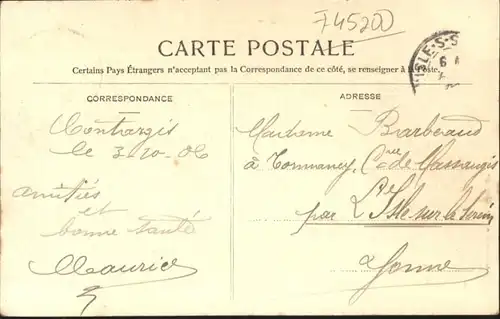 745200
CARTE POSTALE
Certains Pays Étrangers n'acceptant pas la Correspondance de ce côté, se renseigner à la Poste.
CORRESPONDANCE
ADRESSE
Montargis
le 3-10-06
amitiés
et
bonne santé
Maurice
Madame Barberaud
à Tormancy, Cne de Massangis
par L'Isle-sur-le-Serein
Yonne
ISLE-S-S
6